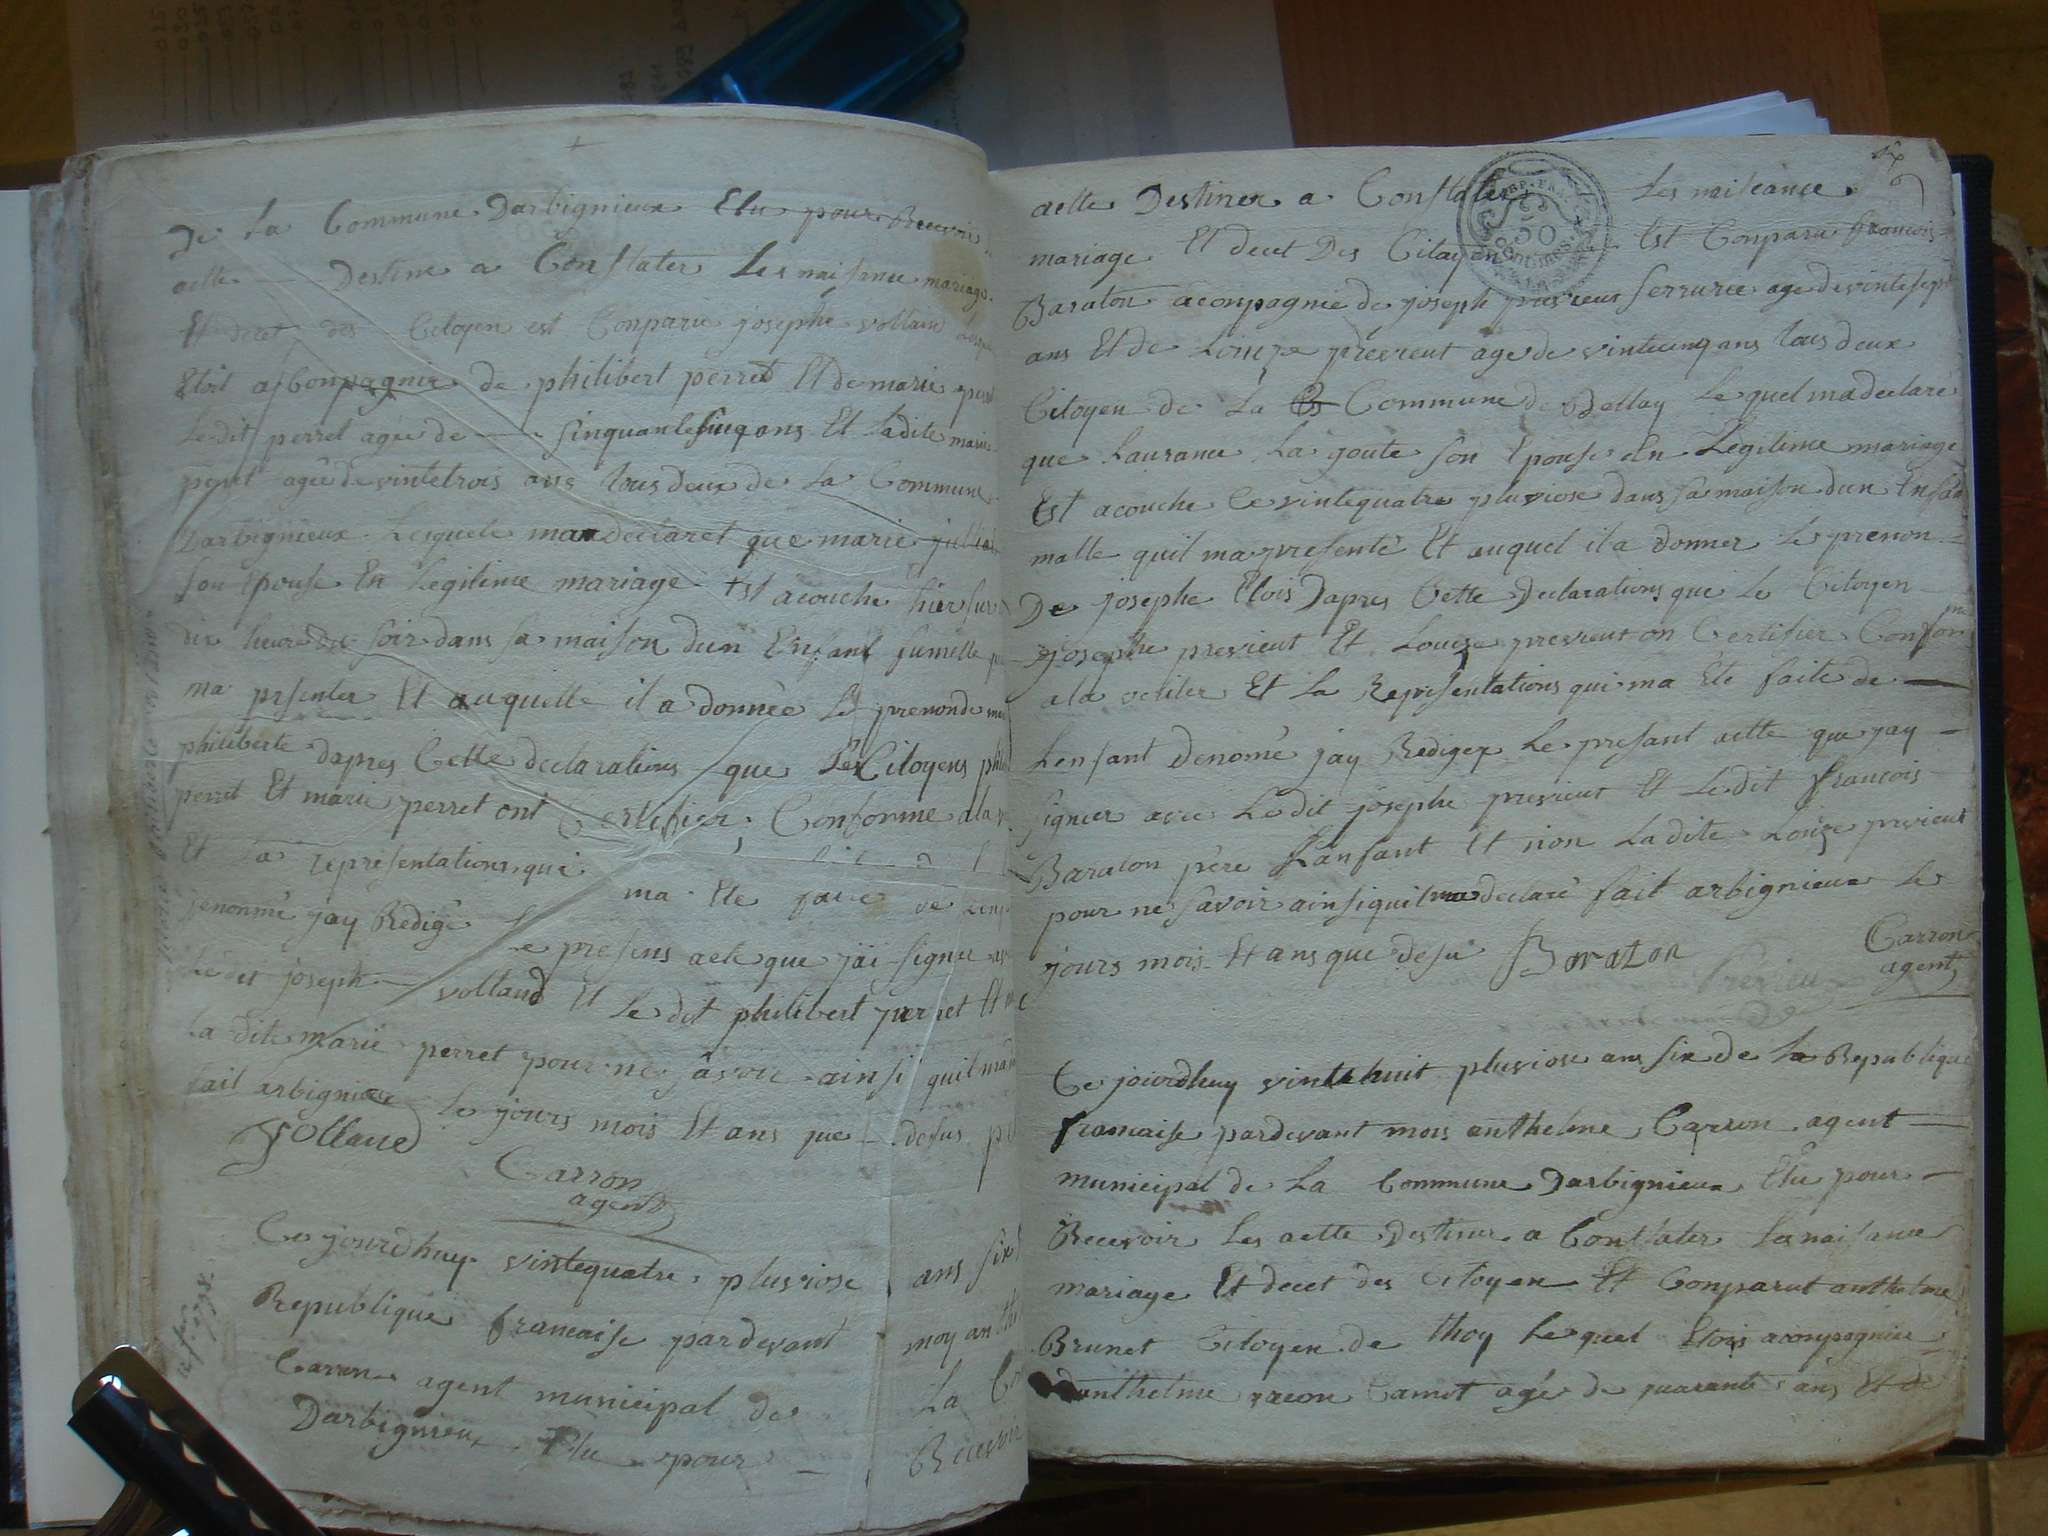 De La Commune Darbignieux Elu pour Recevoir
actte Destine a Constater Les naisance mariage
Et decet des Citoyen est Conparu josephe vollaud
Etoit acConpagnie de philibert perret Et de marie perret
Ledit perret agée de sinquantesinq ans Et Ladite marie
perret agée de vintetrois ans tous deux de La Commune
Darbignieux Lesquele ma declaret que marie
son Epouse En Legitime mariage Est acouche hier sur
dix heure du soir dans sa maison dun Enfant fumelle
ma prsenter Et auquelle il a donnée Le prenon de
philiberte dapres Cette declarations que Les Citoyens
perret Et marie perret ont Certifier Conforme a la
Et La representations qui ma Ete faite de
denonmé jay Redigé Le presens acte que jai signé
Le dit joseph vollaud Et Le dit philibert perret Et
La dite marie perret pour ne savoir ainsi quil
fait arbignieux Le jours mois Et ans que desus
Vollaud
Carron
agent
Ce jourdhuy vintequatre pluviose ans six
Republique francaise pardevant moy
Carron agent municipal de La
Darbignieux Elu pour Recevoir
six
actte Destiner a Constater Les naiseance
mariage Et decet Des Citoyen Est Conparu francois
Baraton aconpagnie de joseph previeux serrurie age de vintesept
ans Et de Louize previeut age de vintecinq ans tous deux
Citoyen de La Commune de Bellay Le quel ma declaré
que Laurance La goute son Epouse En Legitime mariage
Est acouche Ce vintequatre pluviose dans sa maison dun Enfan
malle quil ma presenté Et auquel il a donner Le prenon
De josephe Elois Dapres Cette Declarations que Le Citoyen
josephe previeut Et Louize previeut on Certifier Conforme
a la veriter Et La Representations qui ma Ete faite de
Lenfant denomé jay Rediger Le presant actte que jay
signer avec Ledit josephe previeut Et Ledit francois
Baraton père Lanfant Et non Ladite Louize previeut
pour ne savoir ainsi quil ma declaré fait arbignieux Le
jours mois Et ans que desu Baraton
Carron
agent
Ce jourdhuy vintehuit pluviose ans six de La Republique
francaise pardevant mois anthelme Carron agent
municipal de La Commune Darbignieux Elu pour
Recevoir Les actte Destiner a Constater Les naisance
mariage Et decet des Citoyen Et Comparut anthelme
Brunet Citoyen de thoy Lequel Etois aconpagnie
danthelme Camot agée de quarante ans Et de